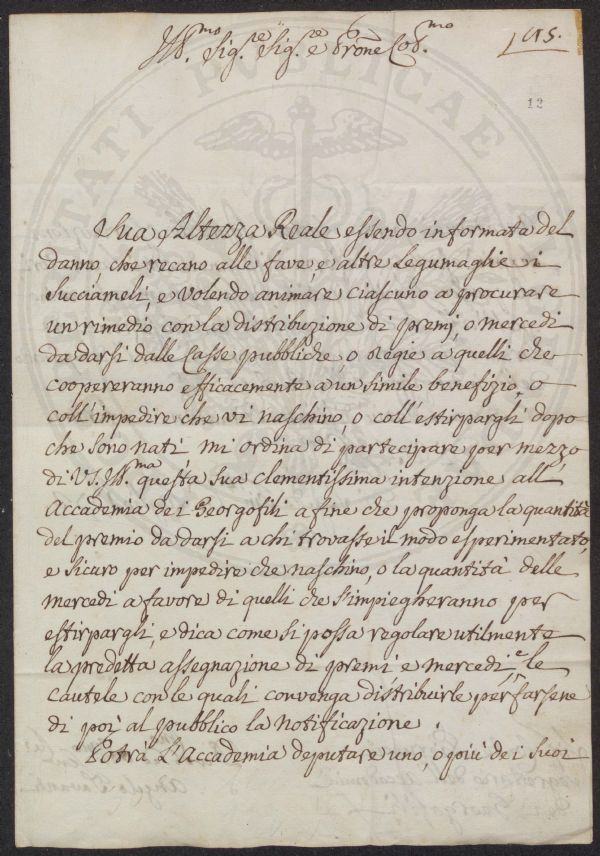 Ill.mo Sig.re Sig.re e Prone Col.mo
115.
12
Sua Altezza Reale essendo informata del
danno, che recano alle fave, e altre Legumaglie i
Succiameli, e volendo animare ciascuno a procurare
un rimedio con la distribuzione di premj, o mercedi
da darsi dalle Casse pubbliche, o Regie a quelli che
coopereranno efficacemente a un simile benefizio, o
coll'impedire che vi naschino, o coll'estirpargli dopo
che sono nati mi ordina di partecipare per mezzo
di VS. Ill.ma questa sua clementissima intenzione all'
Accademia dei Georgofili a fine che proponga la quantità
del premio da darsi a chi trovasse il modo esperimentato,
e sicuro per impedire che naschino, o la quantità delle
mercedi a favore di quelli che s'impiegheranno per
estirpargli, e dica come si possa regolare utilmente
la predetta assegnazione di premi e mercedi, e le
cautele con le quali convenga distribuirle per farsene
di poi al pubblico la notificazione.
Potrà l'Accademia deputare uno, o più dei suoi
PUBLICAE